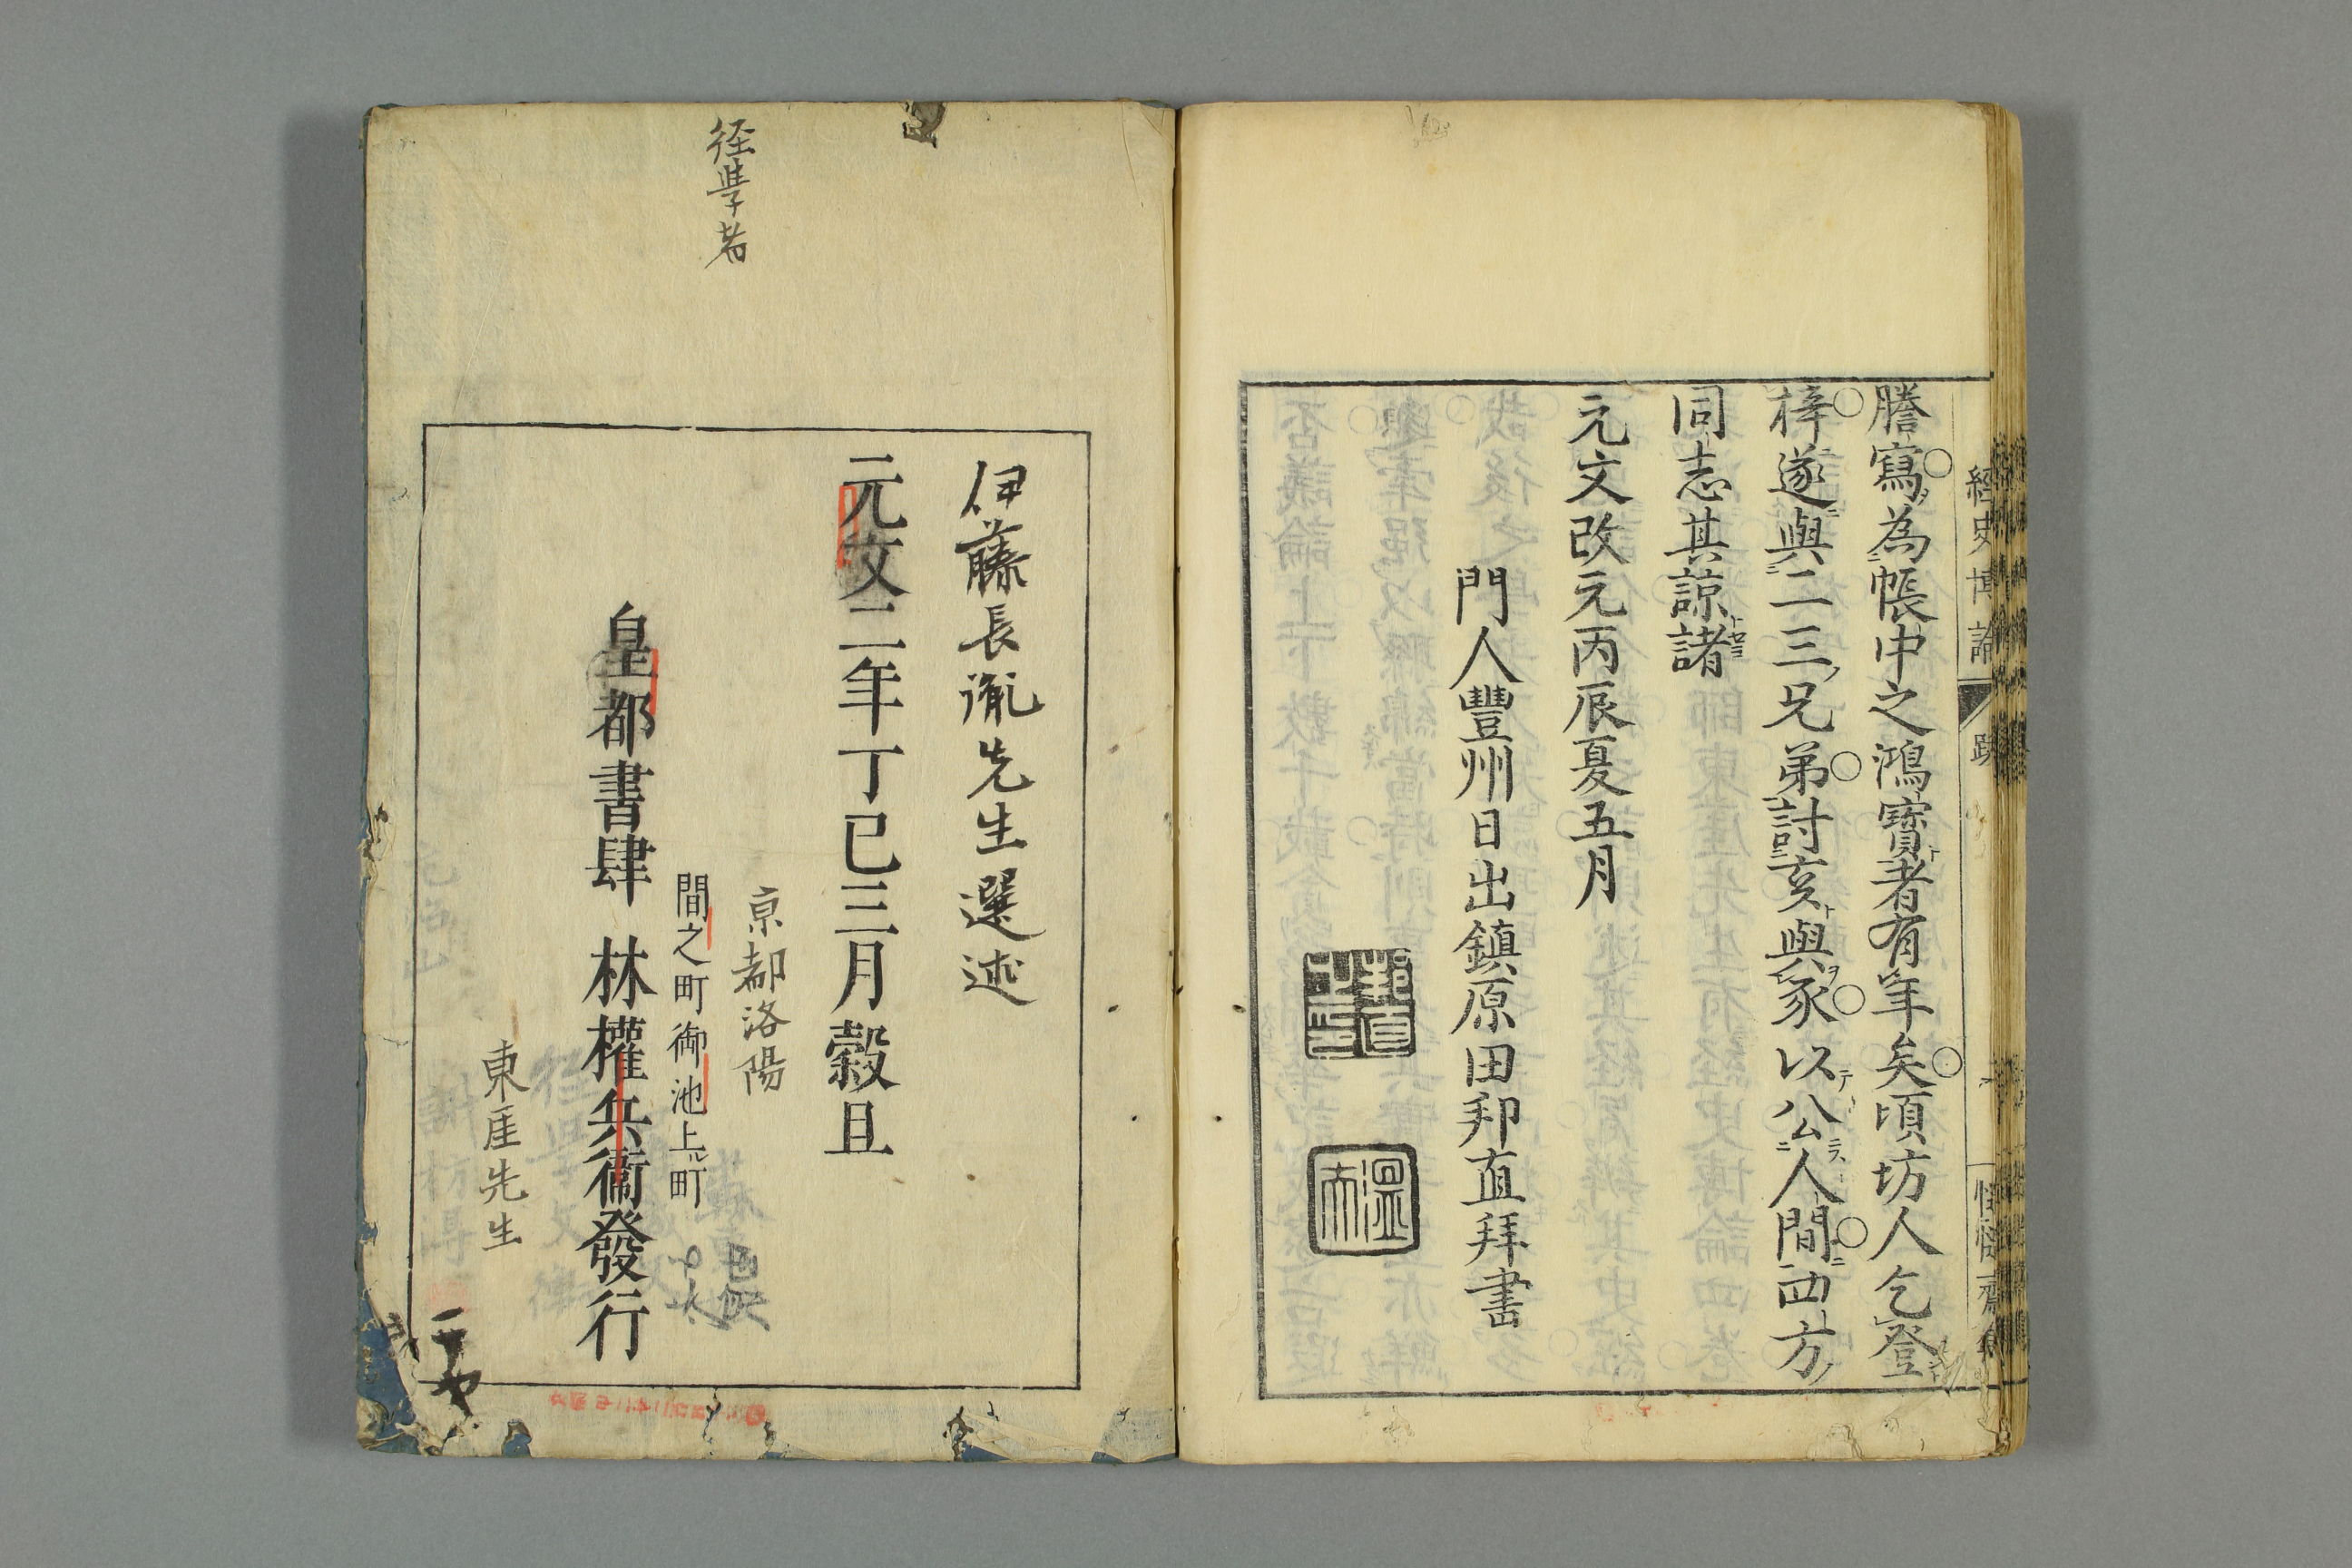 經史博論
跋
謄寫為帳中之鴻寶者有年矣頃坊人乞登
梓遂與二三兄弟討亥與豕以公人間四方
同志其諒諸
元文改元丙辰夏五月
門人豐州日出鎮原田邦直拜書
徑學者
伊藤長胤先生選述
元文二年丁巳三月穀旦
京都洛陽
間之町御池上ル町
皇都書肆 林權兵衞發行
東厓先生